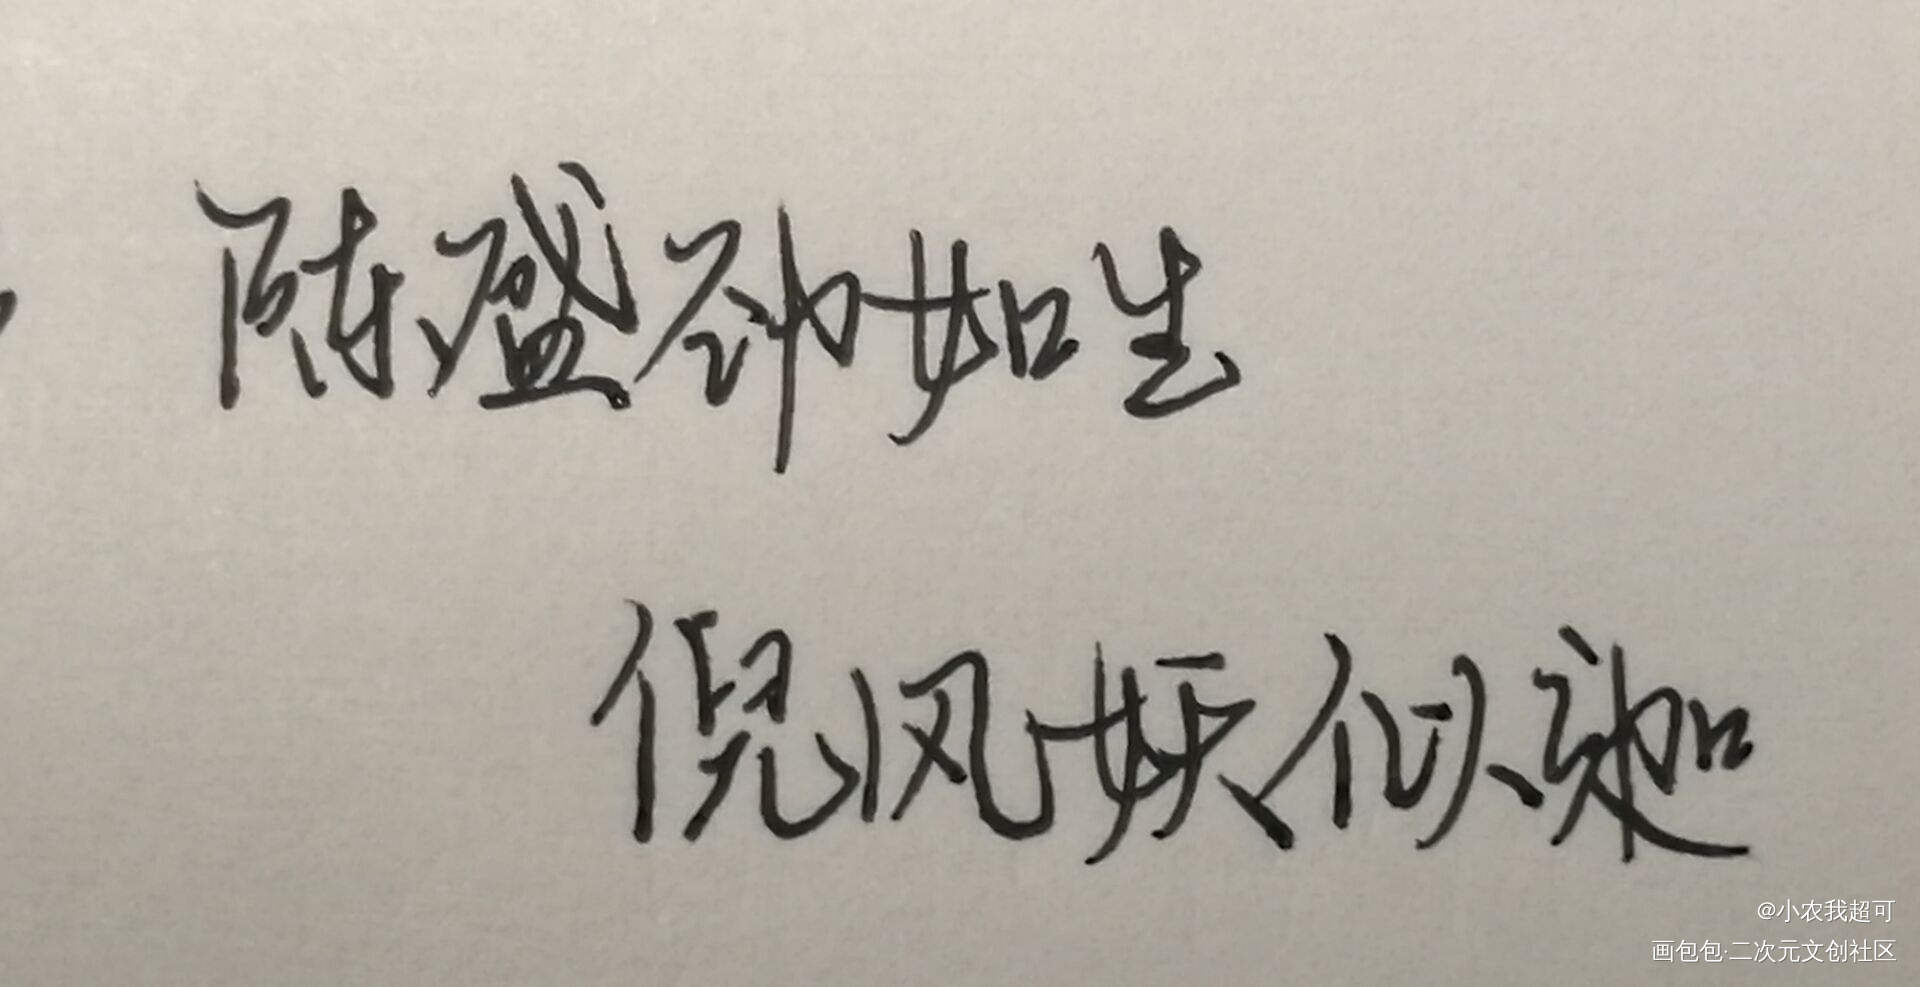 陈盛劲如生
倪风妖似迦
@小农我超可
画包包·二次元文创社区